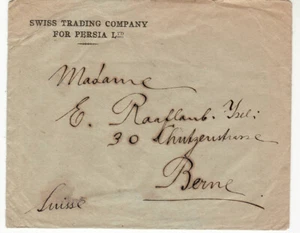 SWISS TRADING COMPANY
FOR PERSIA LTD
Madame
E. Raaflaub.
30 Schützenstrasse
Berne
Suisse